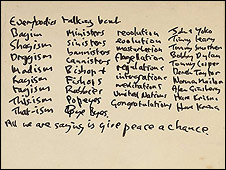 Everybodies talking bout
Bagism
Shagism
Dragism
Madism
Ragism
Tagism
This ism
That-ism
Ministers
sinisters
bannisters
cannisters
Bishop +
Fishops
Popeyes
Bye Byes
revolution
evolution
masturbation
flagellation
regulations
integrations
meditations
United Nations
Congratulations
John + Yoko
Timmy Leary
Tommy Smothers
Bobby Dylan
Tommy Cooper
Derek Taylor
Norman Mailer
Alan Ginsberg
Hare Krishna
Hare
All we are saying is give peace a chance